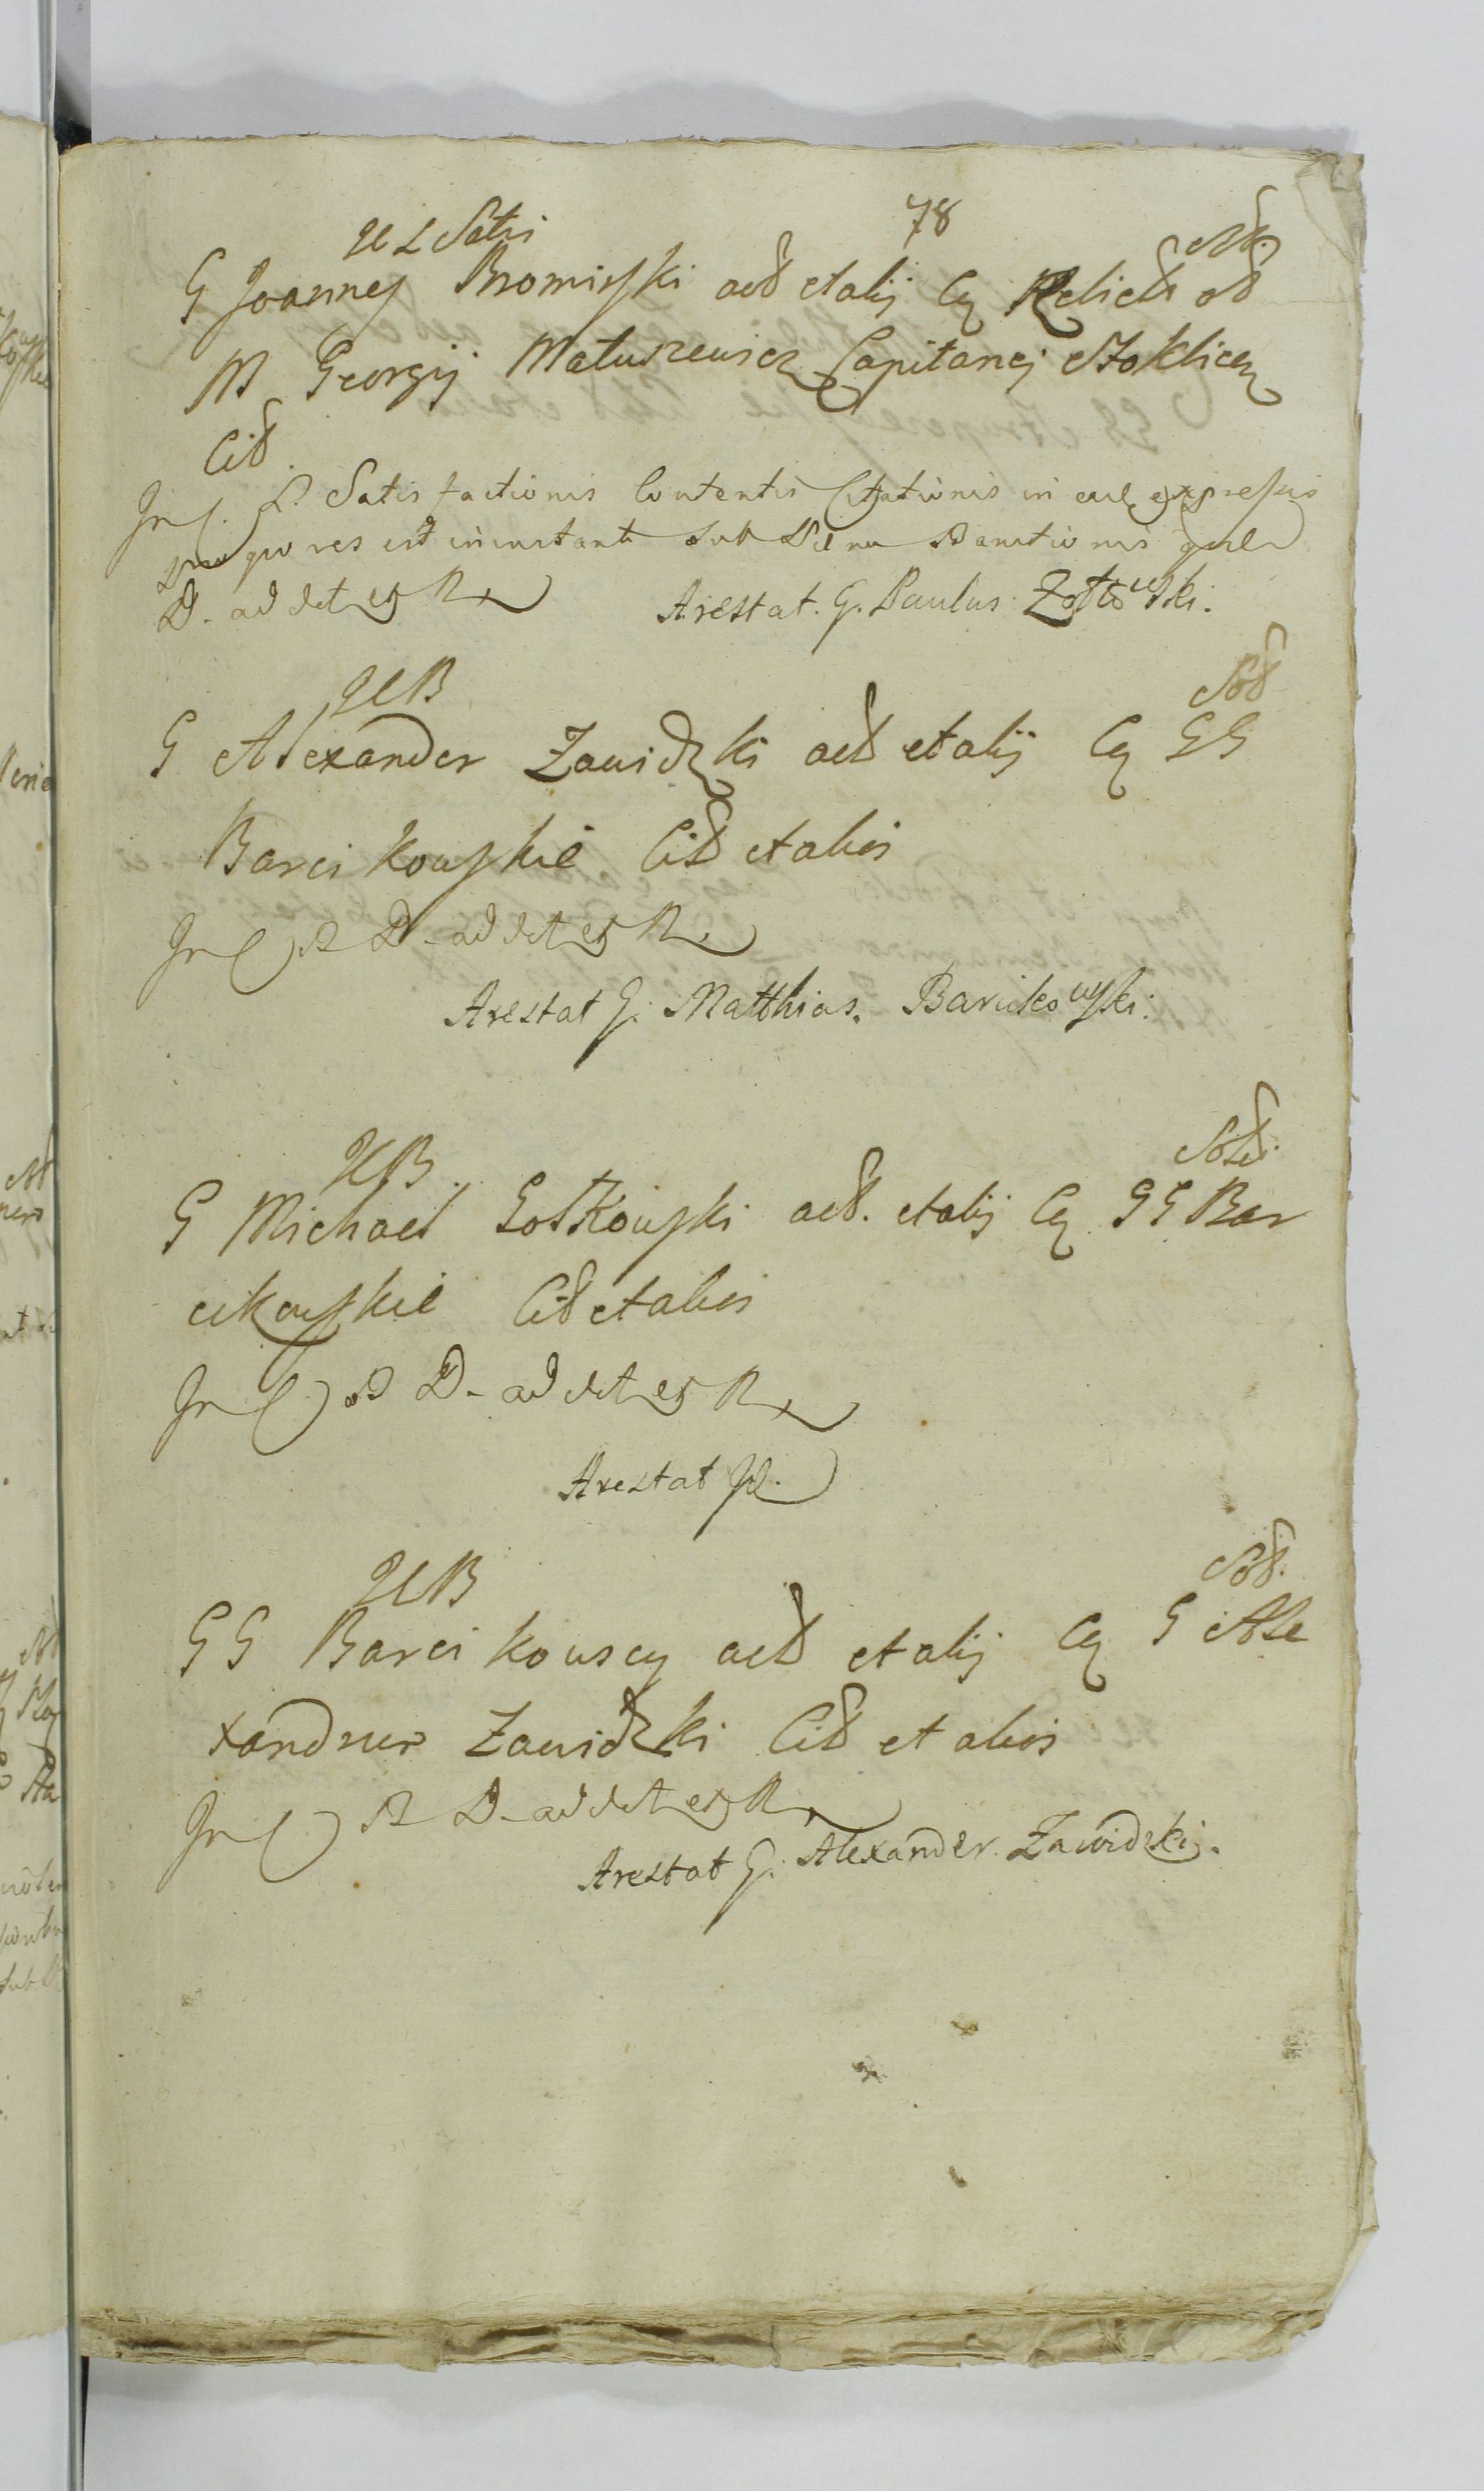 78
G Joannes Bromirski act et alij Cq Relicta
M Georgij Matuszewicz Capitanej Stoklicen
Cit
In C. P. Satisfactionis Contentis Citationis in ead expressis
quo res est in instanti sub Pena Banitionis
D. ad det et R
Arestat. G. Paulus Zołtowski.
UB
G Alexander Zawidzki act et alij Cq GG
Barcikowskie Cit et alios
In C P D-ad det et R
Arestat G. Matthias. Barcikowski.
UB
G Michael Gotkowski act. et alij Cq GG Bar
cikowskie Cit et alios
In C P D-ad det et R
Arestat Id.
UB
GG Barcikowscy act et alij Cq G Ale
xandrum Zawidzki Cit et alios
In C P D-ad det et R
Arestat G. Alexander Zawidzki.